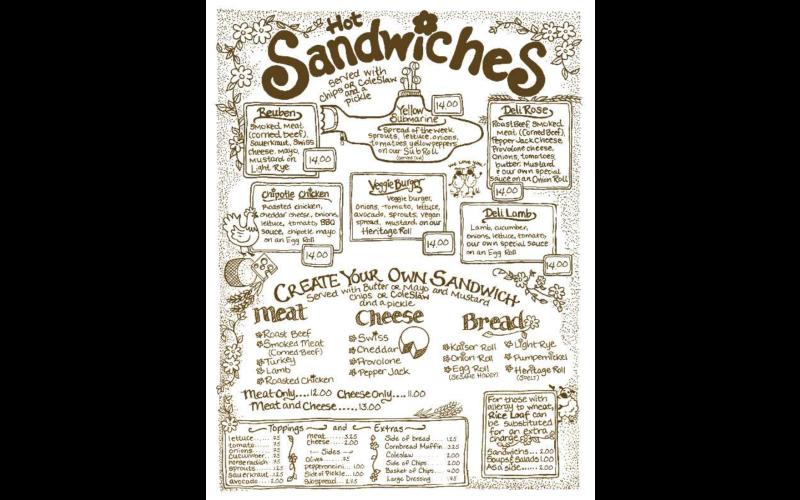 Hot
Sandwiches
Served with
Chips or Coleslaw
and a
pickle
Reuben
Smoked meat
(corned beef),
Sauerkraut, Swiss
cheese, mayo,
mustard on
Light Rye
14.00
Yellow
Submarine
14.00
Spread of the week
sprouts, lettuce, onions,
tomatoes, yellow peppers
on our Sub Roll
Deli Rose
Roast Beef, Smoked
meat (Corned Beef),
Pepper Jack Cheese
Provolone cheese,
Onions, tomatoes,
butter, Mustard
& our own special
sauce on an Onion Roll
14.00
Chipotle Chicken
Roasted chicken,
cheddar cheese, onions,
lettuce, tomato, BBQ
sauce, chipotle mayo
on an Egg Roll
14.00
Veggie Burger
Veggie burger,
onions, tomato, lettuce,
avocado, sprouts, vegan
spread, mustard on our
Heritage Roll
14.00
we love you
Deli Lamb
Lamb, cucumber,
onions, lettuce, tomato,
our own special sauce
on an Egg Roll
14.00
Create Your Own Sandwich
Served with Butter or Mayo and Mustard
Chips or Coleslaw
and a pickle
Meat
Roast Beef
Smoked Meat
(Corned Beef)
Turkey
Lamb
Roasted Chicken
Cheese
Swiss
Cheddar
Provolone
Pepper Jack
Bread
Kaiser Roll
Onion Roll
Egg Roll
Light Rye
Pumpernickel
Heritage Roll
(Spelt)
Meat Only....12.00 Cheese Only....11.00
Meat and Cheese.....13.00
Toppings and Extras
lettuce.....25
tomato.....25
onions.....25
cucumber.....25
horseradish.....25
sprouts.....25
sauerkraut..125
avocado..2.00
meat.....3.25
cheese.....2.00
Sides
Olives.....75
pepperoncini...1.00
Side of Pickle....1.00
Subspread....2.75
Side of bread....1.25
Cornbread Muffin.3.25
Coleslaw 2.00
Side of Chips.....2.00
Basket of Chips....4.00
Large Dressing
For those with
allergy to wheat,
Rice Loaf can
be substituted
for an extra
charge
Sandwiches...2.00
Soups/Salads 1.00
As a side.....2.00